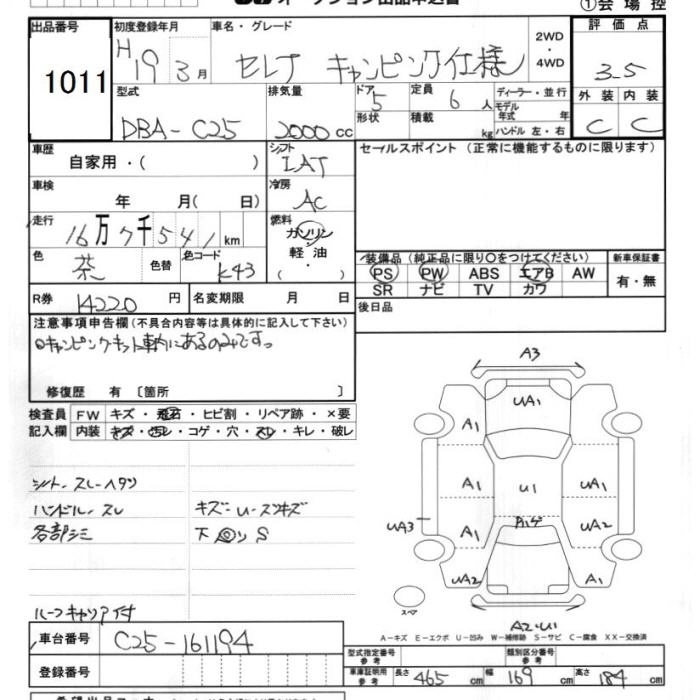 ①会場控
出品番号
1011
初度登録年月
H19 3月
車名・グレード
セレナ キャンピング仕様
2WD
・
4WD
評価点
3-5
外装 内装
C C
型式
DBA-C25
排気量
2000cc
ドア 5
形状
定員 6人
積載 kg
ディーラー・並行
モデル年式 年
ハンドル 左・右
車歴
自家用・( )
シフト
IAT
セールスポイント(正常に機能するものに限ります)
車検
年 月( 日)
冷房
AC
走行
16万7千541km
燃料
ガソリン
・
軽油
・
( )
色
茶
色替
色コード
K43
装備品(純正品に限り○をつけてください)
PS PW ABS エアB AW
SR ナビ TV カワ
新車保証書
有・無
R券 14220円
名変期限 月 日
後日品
注意事項申告欄(不具合内容等は具体的に記入して下さい)
○キャンピングキット車内にあるのみですっ
修復歴 有 〔箇所 〕
検査員 FW キズ・飛石・ヒビ割・リペア跡・×要
記入欄 内装 キズ・汚レ・コゲ・穴・スレ・キレ・破レ
シート、スレ・ヘタリ
ハンドル、スレ
キズ-U-スリキズ
各部シミ
下 ◎ソ S
ルーフキャリア付
A3
UA1
A1
A1 U1 UA1
UA3 A1 UA2
UA2 A1
スペア
A2-U1
A-キズ E-エクボ U-凹み W-補修跡 S-サビ C-腐食 XX-交換済
車台番号 C25-161194
登録番号
型式指定番号
参考
類別区分番号
参考
車庫証明用
参考
長さ 465cm 幅 169cm 高さ 184cm